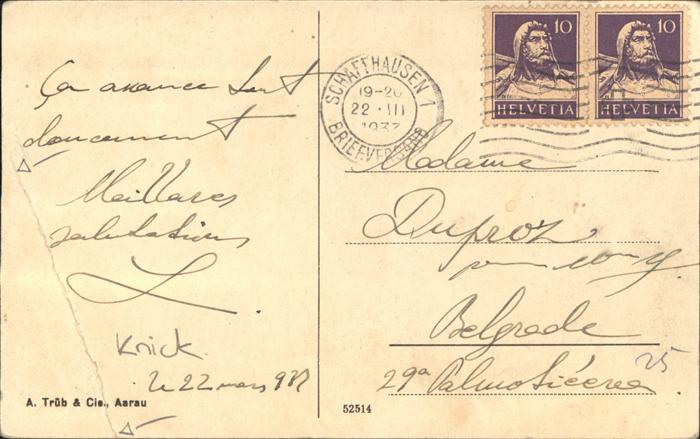 Ça avance tout
doucement
Meilleures
salutations
Knick
le 22 mars 937
A. Trüb & Cie., Aarau
52514
10
HELVETIA
10
HELVETIA
SCHAFFHAUSEN 1
19-20
22 · III
1937
BRIEFVERSAND
Madame
Duproz
pour
Belgrade
29a Palmotićeva
25